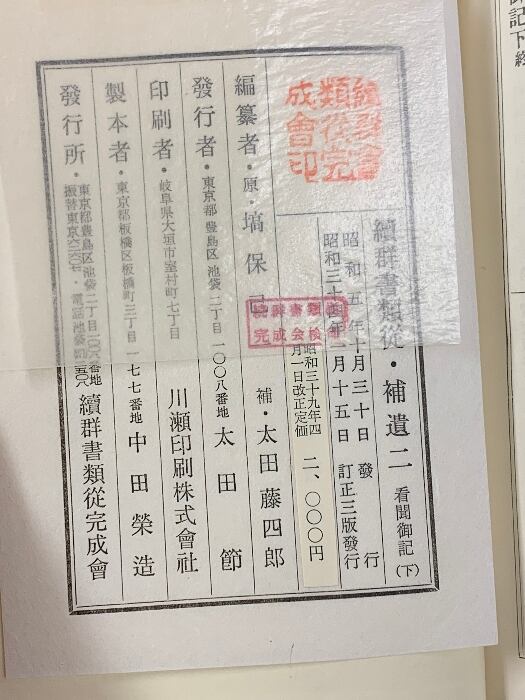 續群書類從・補遺二 看聞御記(下)
昭和五年十月三十日 發行
昭和三十四年 月十五日 訂正三版發行
昭和三十九年四
月一日改正定価
二、〇〇〇円
編纂者・原・塙保己一 補・太田藤四郎
發行者・東京都豊島區池袋二丁目一〇〇八番地 太田節
印刷者・岐阜県大垣市室村町七丁目 川瀬印刷株式會社
製本者・東京都板橋区板橋町三丁目一七七番地 中田榮造
發行所・東京都豊島区池袋二丁目一〇〇八番地 續群書類從完成會
振替東京六二六〇七・電話池袋
續群書
類從完
成會印
下終